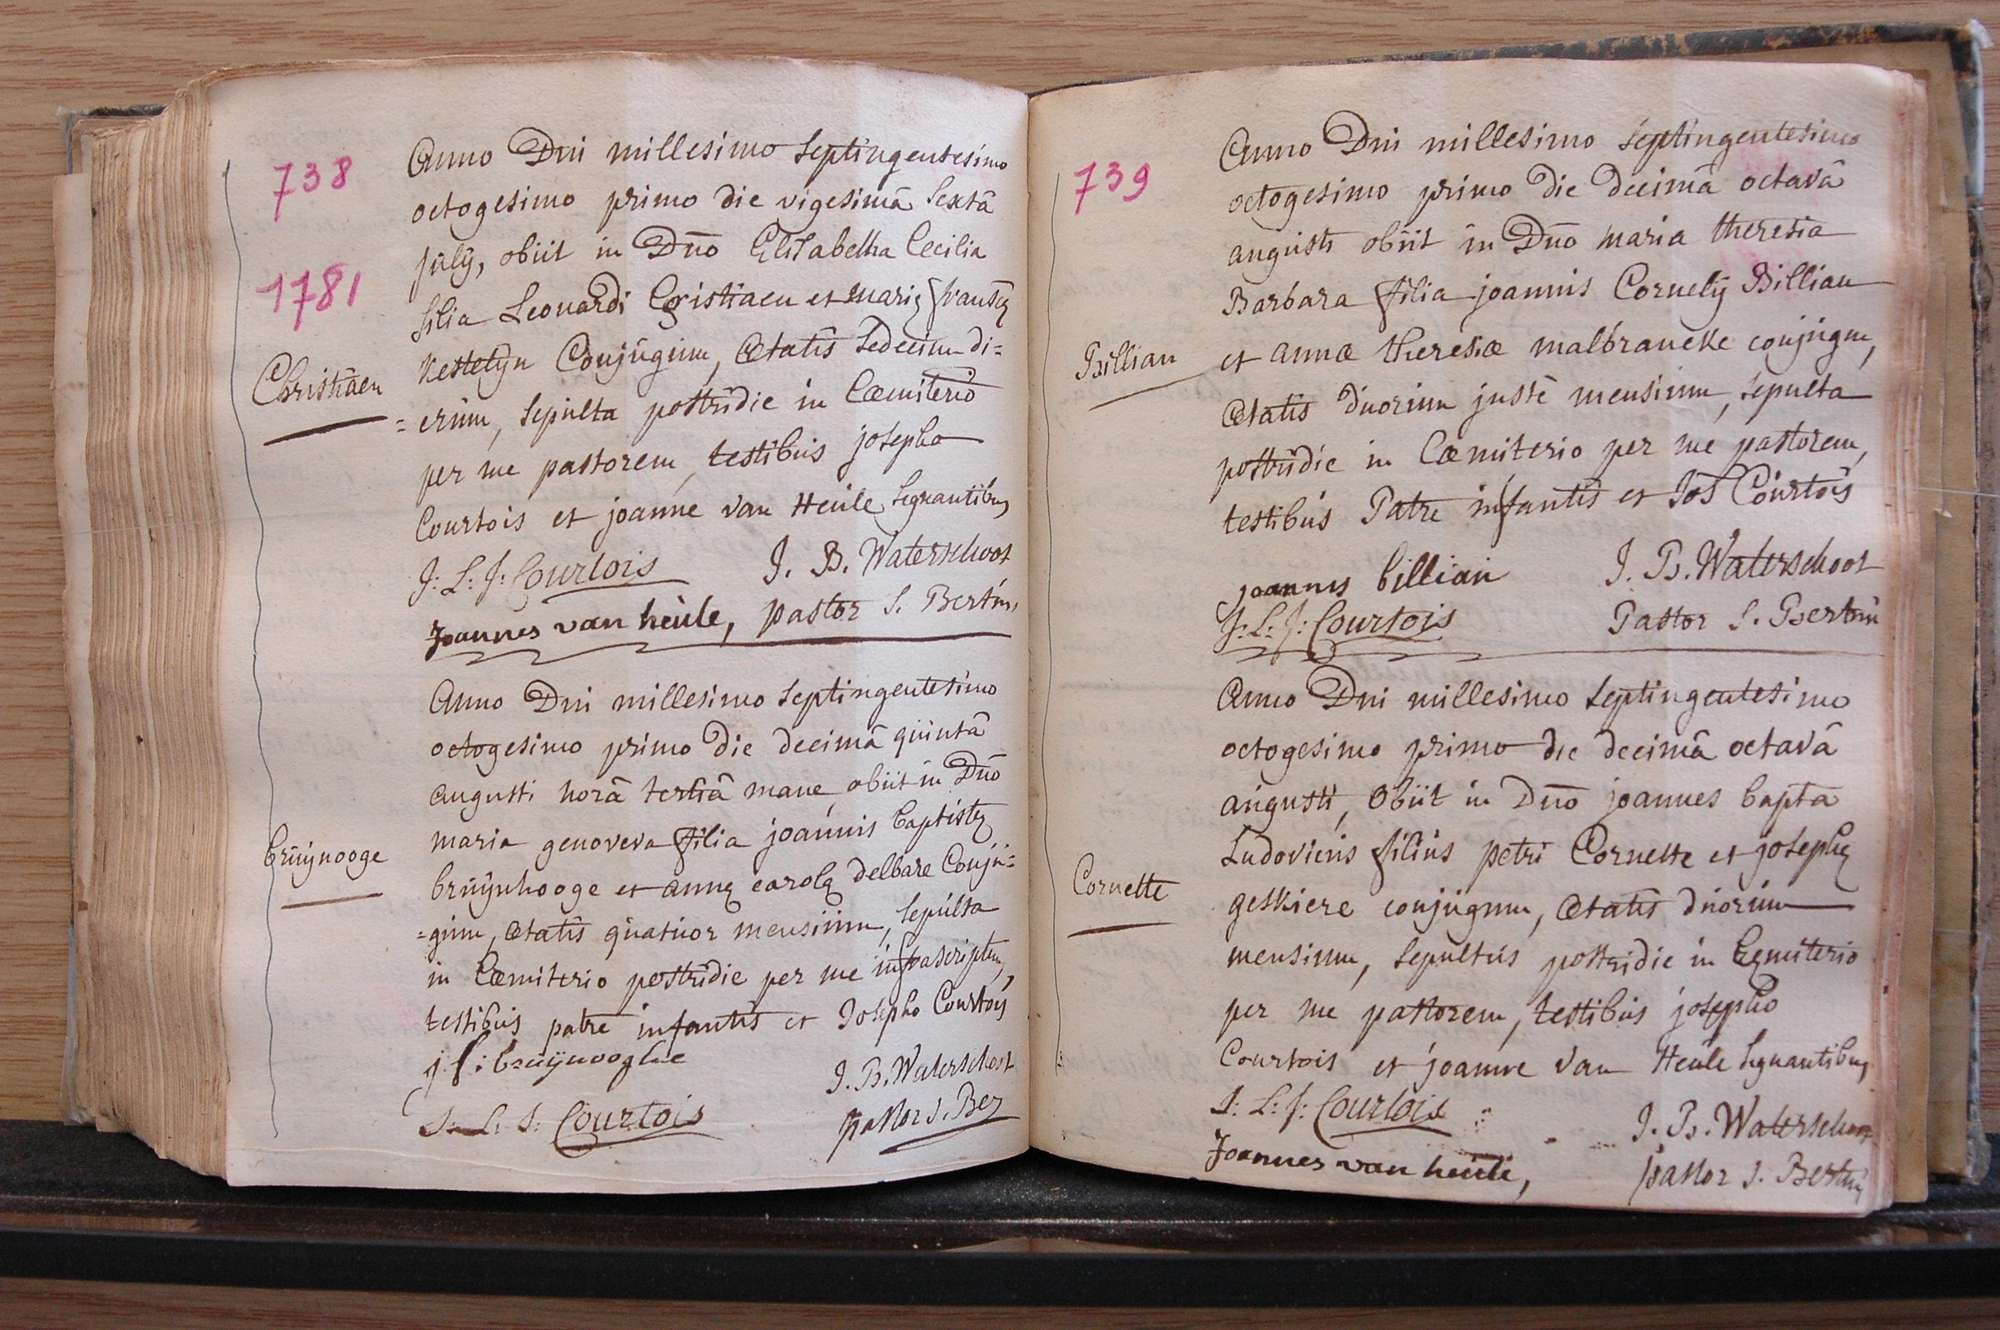 738
Anno Dni millesimo septingentesimo
octogesimo primo die vigesimâ sextâ
julÿ, obiit in Dno Elisabetha Cecilia
1781
filia Leonardi Cristiaen et marię franscę
Kestelÿn Conjugum, Ætatis sedecim di=
Christiaen
=erum, sepulta postridie in Cœmiterio
per me pastorem, testibus josepho
Courtois et joanne van Heule signantibus
J: L: J: Courtois J. B. Waterschoot
Joannes van heule, pastor S. Bertin,
Anno Dni millesimo septingentesimo
octogesimo primo die decimâ quintâ
augusti horâ tertiâ mane obiit in Dno
maria genoveva filia joannis baptistę
bruÿnooge
bruÿnhooge et annę carolę delbare Conju=
=gum, Ætatis quatuor mensium, sepulta
in Cœmiterio postridie per me infrascriptum,
testibus patre infantis et Josepho Courtois
j f: bruÿnooghe
J. B. Waterschoot
J. L. J. Courtois pastor S. Ber
739
Anno Dni millesimo septingentesimo
octogesimo primo die decimâ octavâ
augusti obiit in Dno maria theresia
Barbara filia joannis Cornelÿ Billiau
Billiau
et annæ theresiæ malbrancke conjugum,
Ætatis duorum justè mensium, sepulta
postridie in Cœmiterio per me pastorem,
testibus Patre infantis et Jos Courtois
joannes billiau J. B. Waterschoot
J: L: J: Courtois Pastor S. Bertini
Anno Dni millesimo septingentesimo
octogesimo primo die decimâ octavâ
augusti, Obiit in Dno joannes bapta
Ludovicus filius petri Cornette et josephę
Cornette
geskiere conjugum, Ætatis duorum
mensium, sepultus postridie in Cęmiterio
per me pastorem, testibus josepho
Courtois et joanne van Heule signantibus
J: L: J: Courtois
J. B. Waterschoot
Joannes van heule, pastor S. Bertini